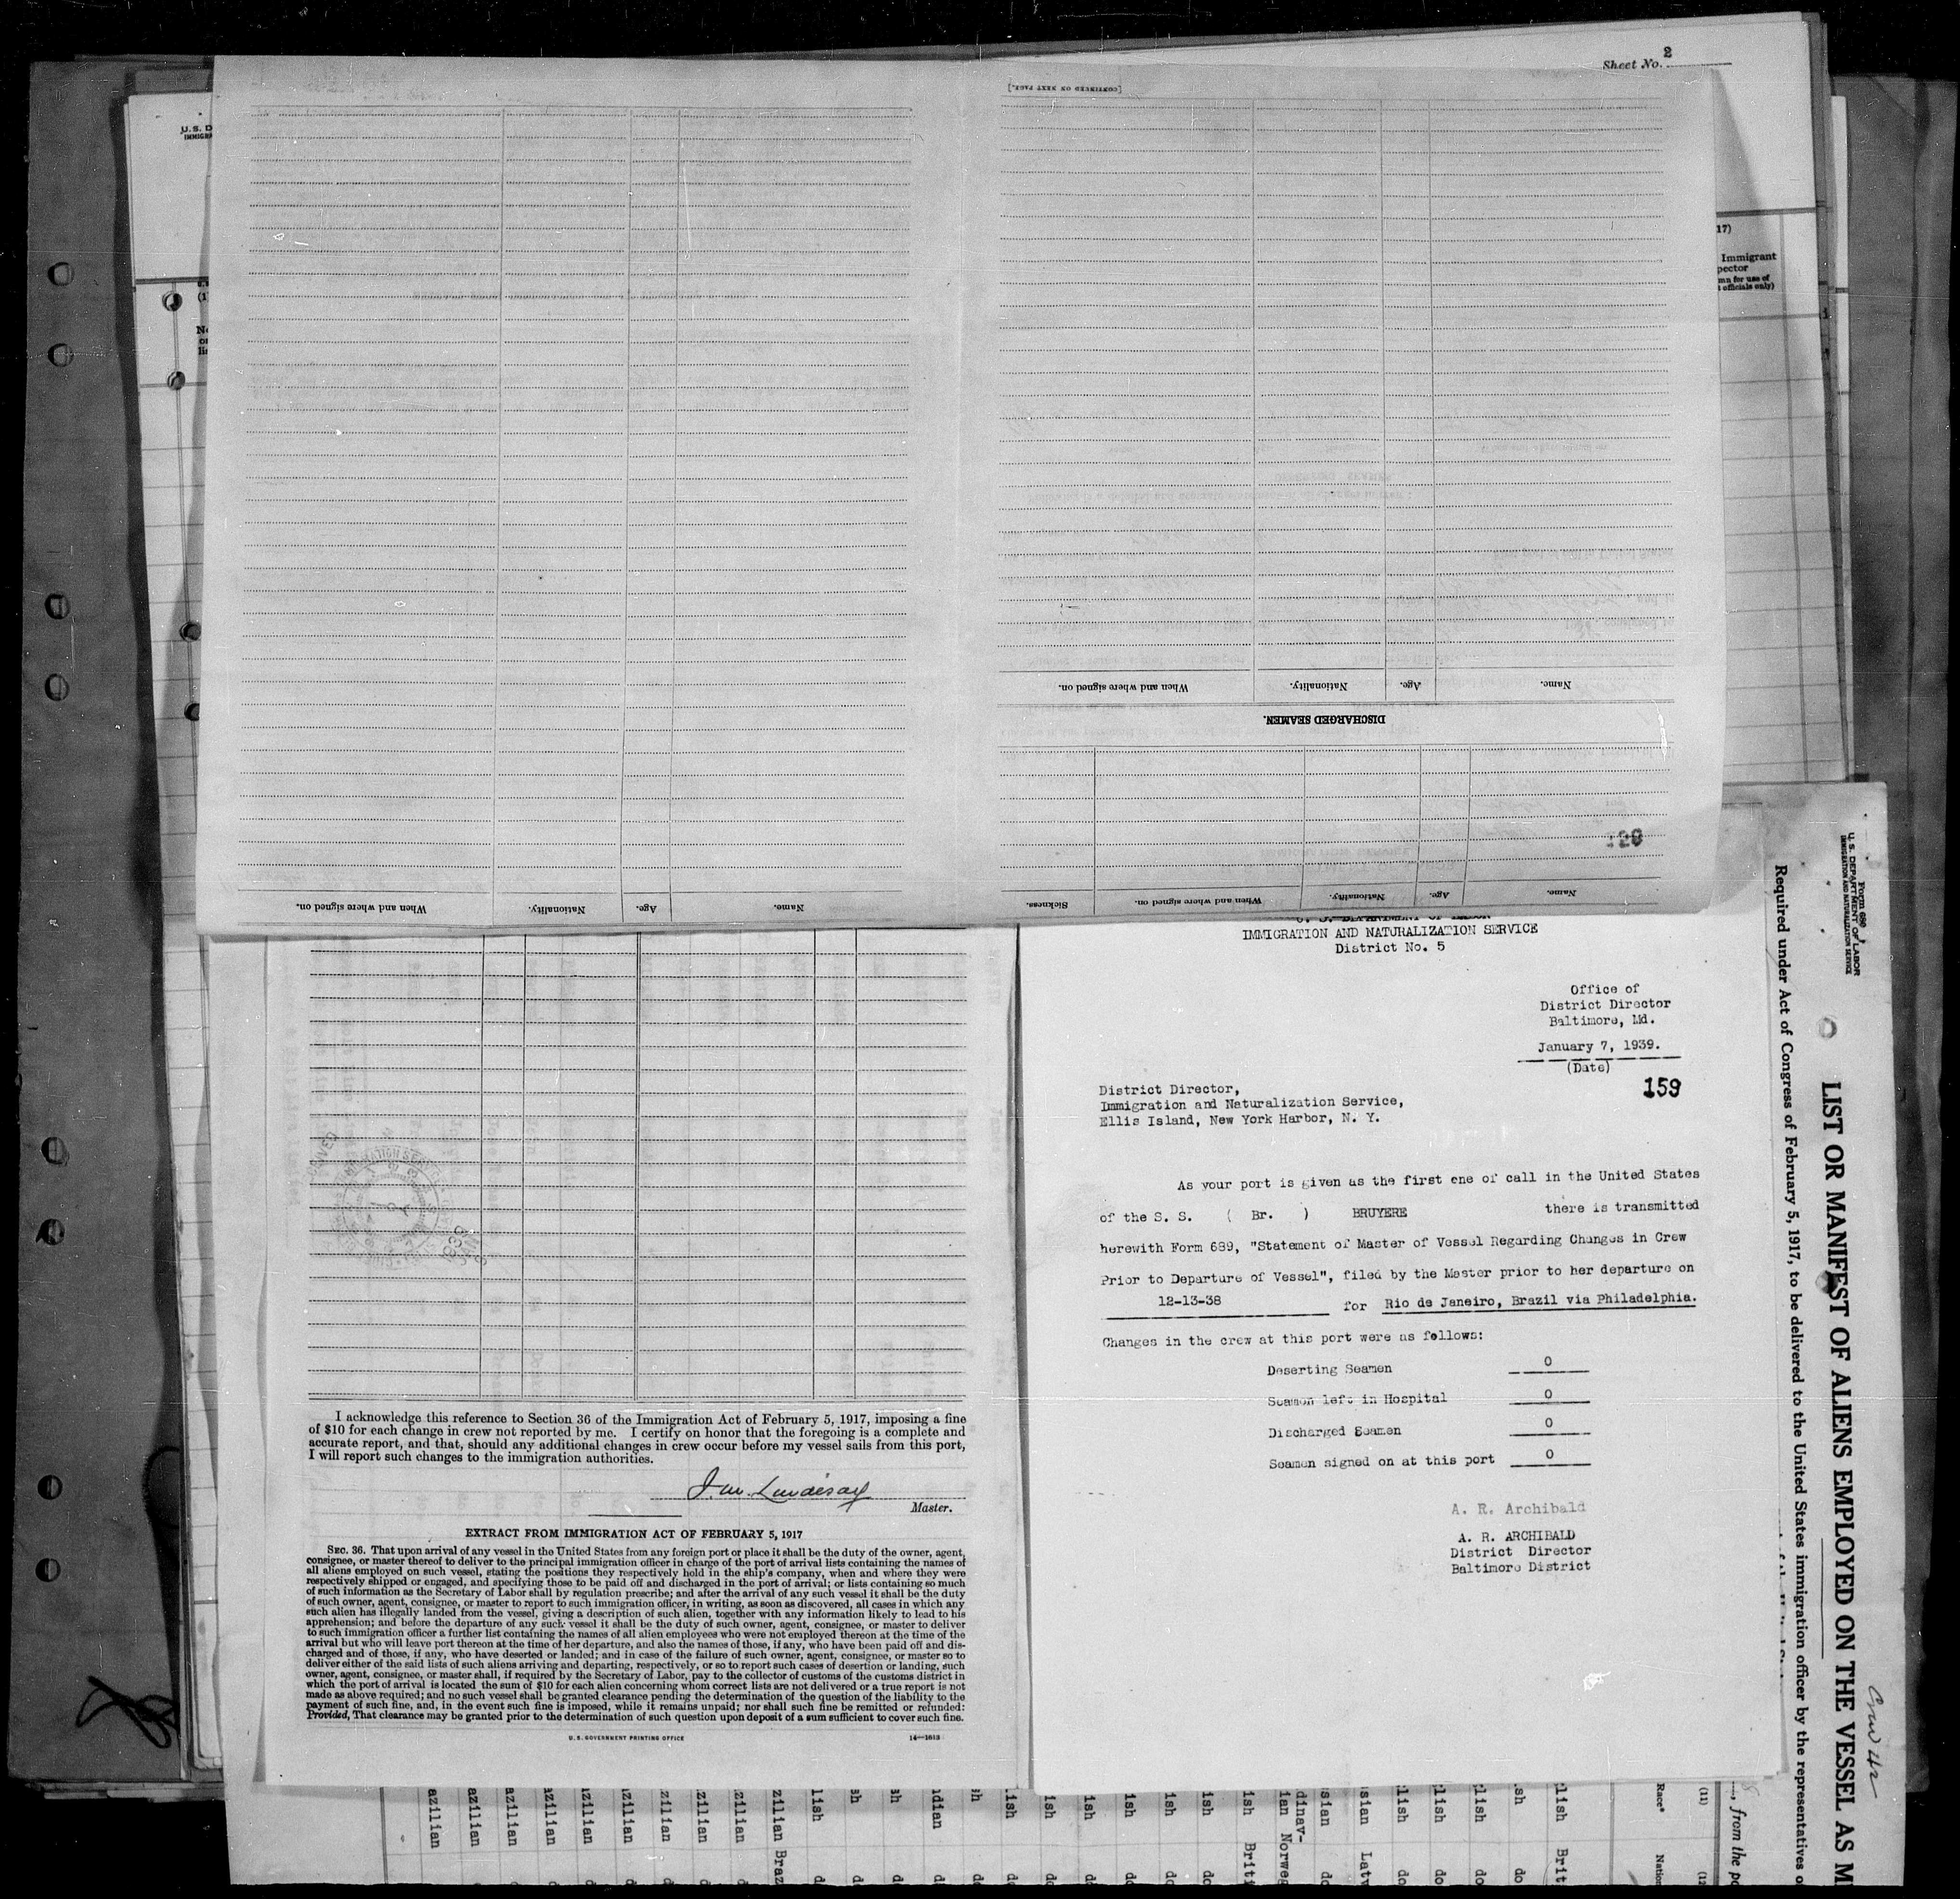 Sheet No. 2
[CONTINUED ON NEXT PAGE.]
U. S. D
IMMIGR
17)
Immigrant
pector
mn for use of
officials only)
When and where signed on.
Nationality.
Age.
Name.
DISCHARGED SEAMEN.
128
Sickness.
When and where signed on.
Nationality.
Age.
Name.
When and where signed on.
Nationality.
Age.
Name.
IMMIGRATION AND NATURALIZATION SERVICE
District No. 5
Office of
District Director
Baltimore, Md.
January 7, 1939.
(Date)
159
District Director,
Immigration and Naturalization Service,
Ellis Island, New York Harbor, N. Y.
As your port is given as the first one of call in the United States
of the S. S. ( Br. ) BRUYERE there is transmitted
herewith Form 689, "Statement of Master of Vessel Regarding Changes in Crew
Prior to Departure of Vessel", filed by the Master prior to her departure on
12-13-38 for Rio de Janeiro, Brazil via Philadelphia.
Changes in the crew at this port were as follows:
Deserting Seamen 0
Seamen left in Hospital 0
Discharged Seamen 0
Seamen signed on at this port 0
A. R. Archibald
A. R. ARCHIBALD
District Director
Baltimore District
I acknowledge this reference to Section 36 of the Immigration Act of February 5, 1917, imposing a fine
of $10 for each change in crew not reported by me. I certify on honor that the foregoing is a complete and
accurate report, and that, should any additional changes in crew occur before my vessel sails from this port,
I will report such changes to the immigration authorities.
Master.
EXTRACT FROM IMMIGRATION ACT OF FEBRUARY 5, 1917
SEC. 36. That upon arrival of any vessel in the United States from any foreign port or place it shall be the duty of the owner, agent,
consignee, or master thereof to deliver to the principal immigration officer in charge of the port of arrival lists containing the names of
all aliens employed on such vessel, stating the positions they respectively hold in the ship's company, when and where they were
respectively shipped or engaged, and specifying those to be paid off and discharged in the port of arrival; or lists containing so much
of such information as the Secretary of Labor shall by regulation prescribe; and after the arrival of any such vessel it shall be the duty
of such owner, agent, consignee, or master to report to such immigration officer, in writing, as soon as discovered, all cases in which any
such alien has illegally landed from the vessel, giving a description of such alien, together with any information likely to lead to his
apprehension; and before the departure of any such vessel it shall be the duty of such owner, agent, consignee, or master to deliver
to such immigration officer a further list containing the names of all alien employees who were not employed thereon at the time of the
arrival but who will leave port thereon at the time of her departure, and also the names of those, if any, who have been paid off and dis-
charged and of those, if any, who have deserted or landed; and in case of the failure of such owner, agent, consignee, or master so to
deliver either of the said lists of such aliens arriving and departing, respectively, or so to report such cases of desertion or landing, such
owner, agent, consignee, or master shall, if required by the Secretary of Labor, pay to the collector of customs of the customs district in
which the port of arrival is located the sum of $10 for each alien concerning whom correct lists are not delivered or a true report is not
made as above required; and no such vessel shall be granted clearance pending the determination of the question of the liability to the
payment of such fine, and, in the event such fine is imposed, while it remains unpaid; nor shall such fine be remitted or refunded:
Provided, That clearance may be granted prior to the determination of such question upon deposit of a sum sufficient to cover such fine.
U. S. GOVERNMENT PRINTING OFFICE 14—1613
Form 689
U. S. DEPARTMENT OF LABOR
IMMIGRATION AND NATURALIZATION SERVICE
LIST OR MANIFEST OF ALIENS EMPLOYED ON THE VESSEL AS M
Required under Act of Congress of February 5, 1917, to be delivered to the United States immigration officer by the representatives o
Crew 42
, from the po
(11)
Race*
(12
Nation
lish Brit
sh do
lish do
lish do
lish do
sian Latv
sian do
dinav-
ian Norweg
ish Briti
ish do
ish do
ish do
ish
ish
lish do
sh
ndian do
sh do
sh do
lish do
zilian Braz
zilian d
zilian d
zilian d
azilian
zilian
azilian
azilian
azilian
azilian